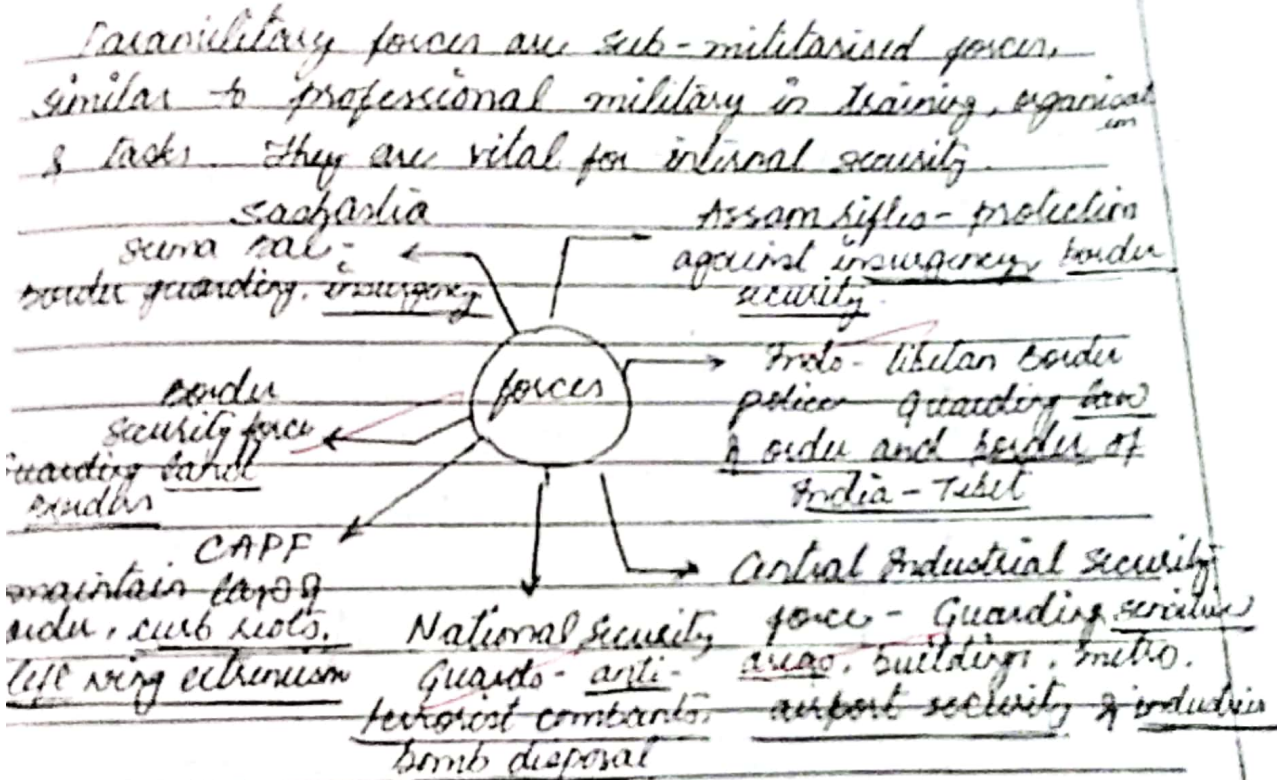 Paramilitary forces are sub-militarised forces,
similar to professional military in training, organisation
& tasks. They are vital for internal security.
Sashastra
Seema Bal -
Border guarding, insurgency
Assam Rifles - protection
against insurgency, border
security.
forces
Indo-Tibetan Border
police Guarding law
& order and border of
India - Tibet
Border
security force
Guarding land
Borders
CAPF
maintain law &
order, curb riots,
left wing extremism
National Security
Guards - anti-
terrorist combants,
bomb disposal
Central Industrial Security
force - Guarding sensitive
areas, buildings, metro,
airport security & industries